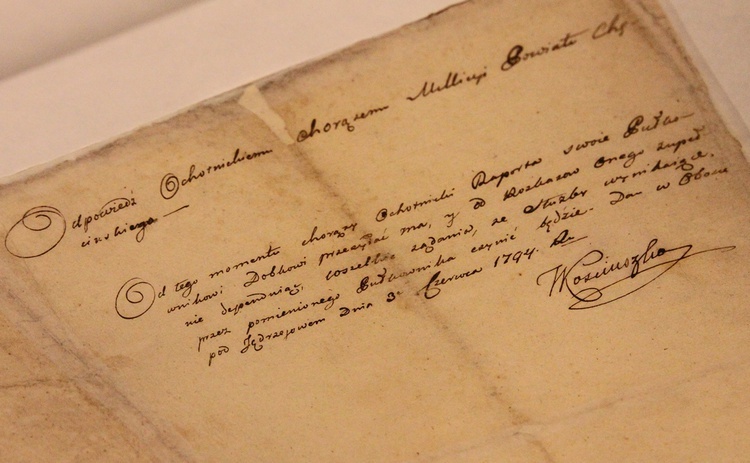 Odpowiedź Ochotnickiemu Chorążemu Millicyi Powiatu Chę-
cinskiego —
Od tego momentu chorąży Ochotnicki Raporta swoie Pułko-
wnikowi Dobkowi przesyłać ma, y od Rozkazow Onego zupeł
nie dependuiąc, wszelkie żądania, ze Służby wynikaiące,
przez pomienionego Pułkownika czynić będzie. Dan w Obozie
pod Jędrzejowem Dnia 3 Czerwca 1794. Ru
TKosciuszko